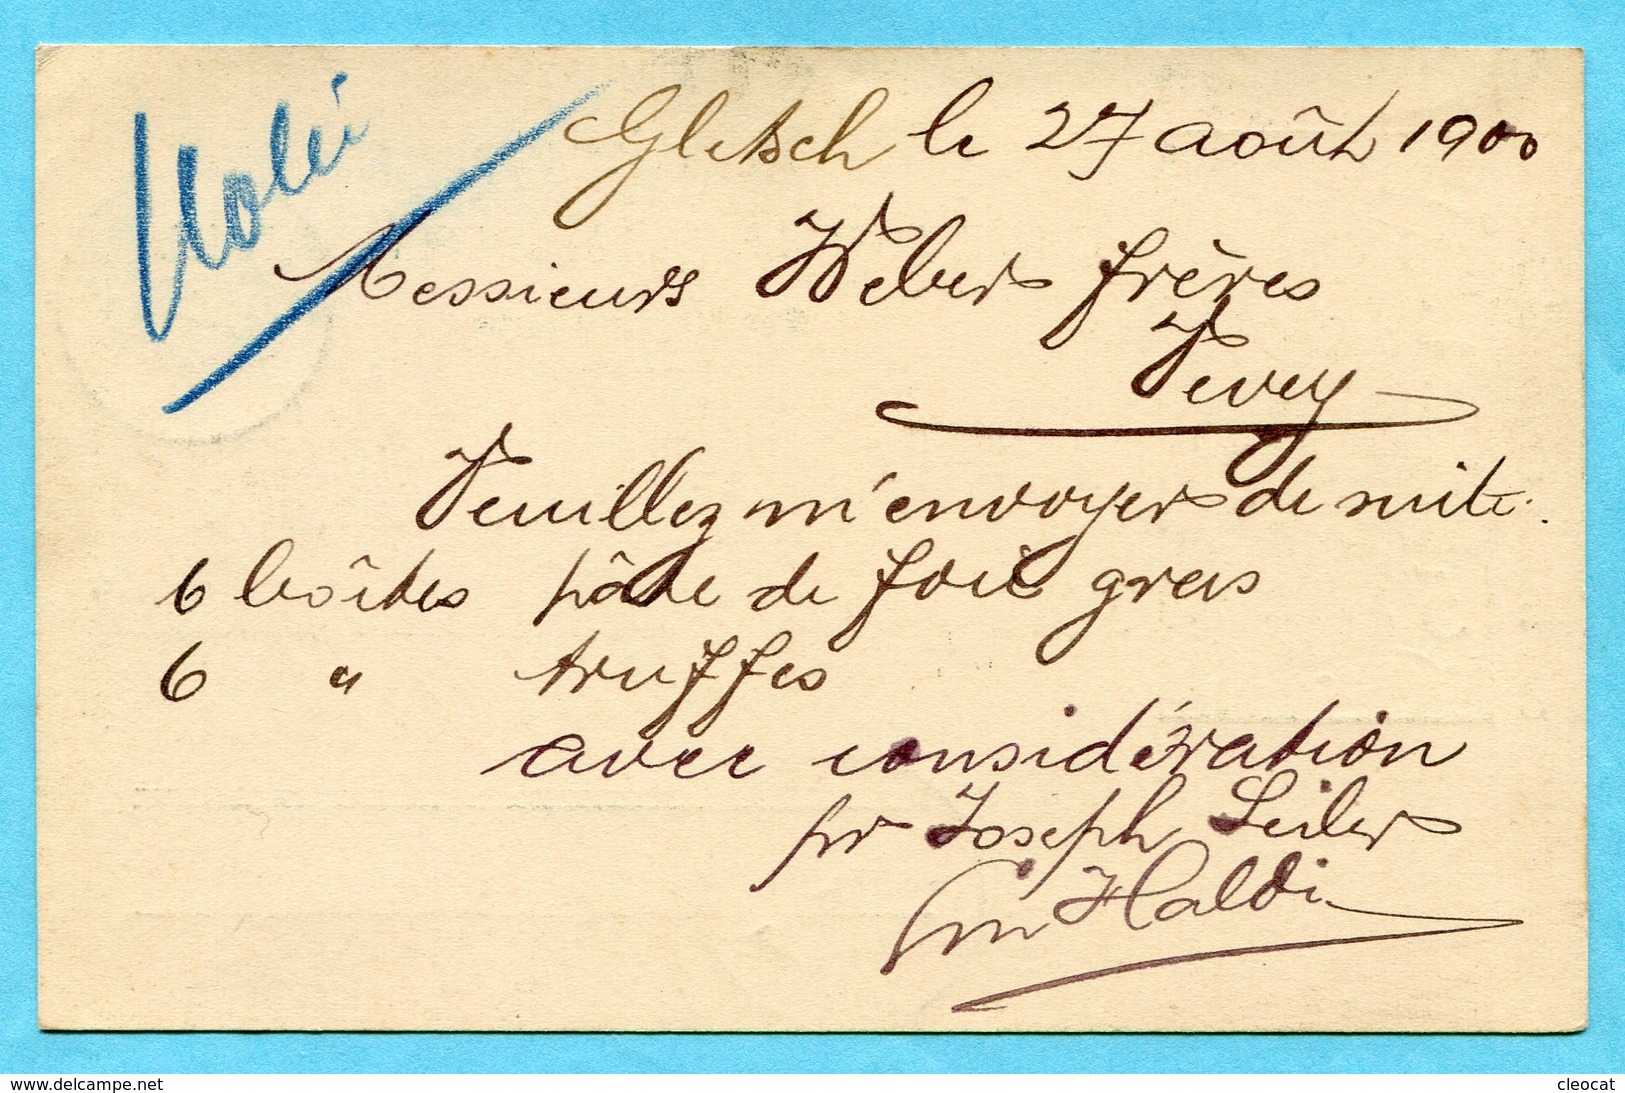 Gletsch le 27 août 1900
Messieurs Weber frères
Vevey
Veuillez m'envoyer de suite.
6 boîtes pâte de foie gras
6 " truffes
avec considération
pr Joseph Seiler
Em Haldi
www.delcampe.net
cleocat